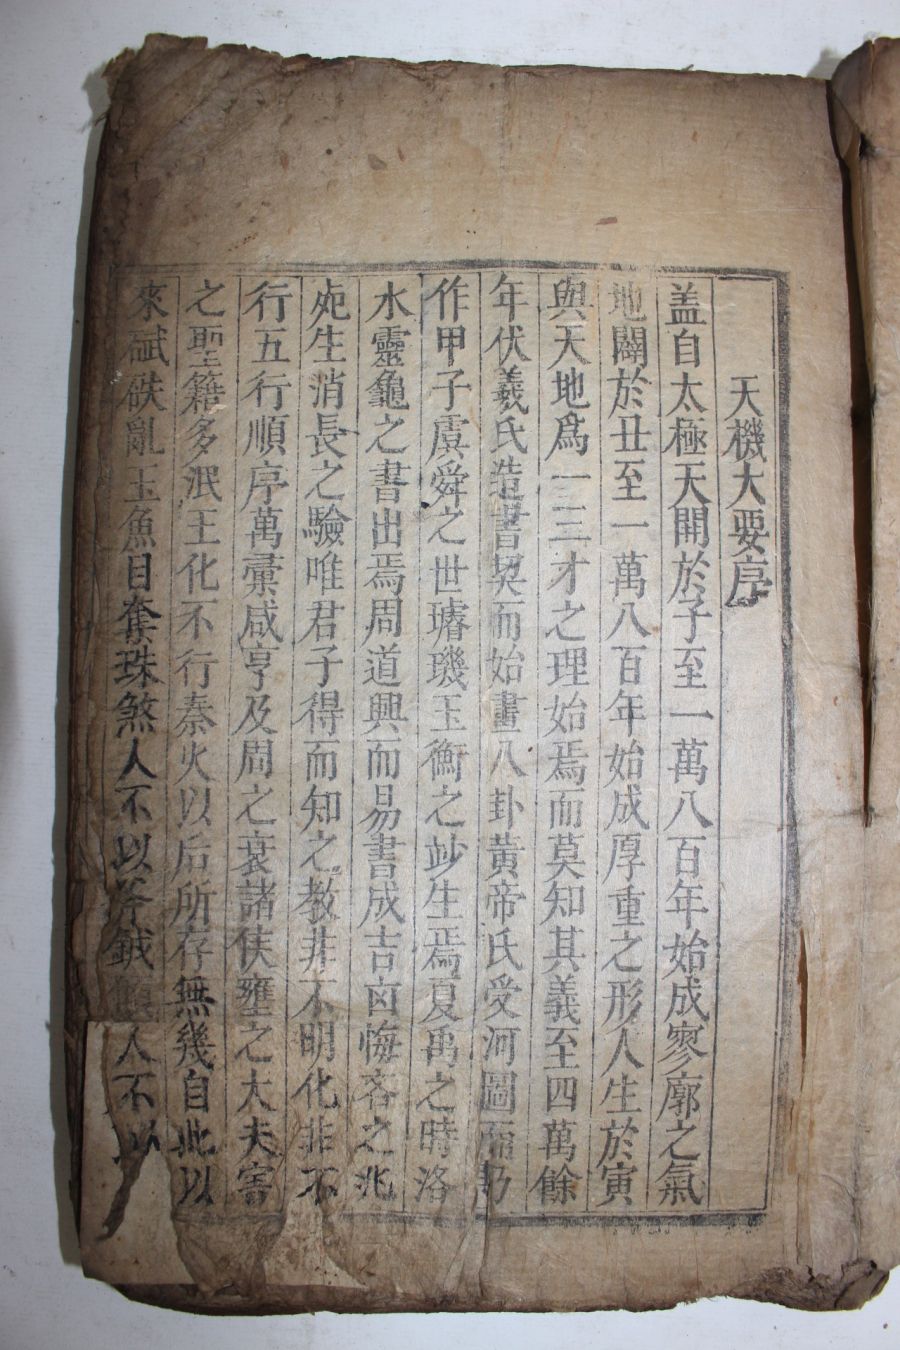 天機大要序
盖自太極天開於子至一萬八百年始成寥廓之氣
地闢於丑至一萬八百年始成厚重之形人生於寅
與天地爲一三才之理始焉而莫知其義至四萬餘
年伏羲氏造書契而始畫八卦黄帝氏受河圖而乃
作甲子虞舜之世璿璣玉衡之妙生焉夏禹之時洛
水靈龜之書出焉周道興而易書成吉凶悔吝之兆
死生消長之驗唯君子得而知之教非不明化非不
行五行順序萬彙咸亨及周之衰諸侯壅之大夫害
之聖籍多泯王化不行秦火以后所存無幾自此以
來碔砆亂玉魚目奪珠煞人不以斧鉞 人不以